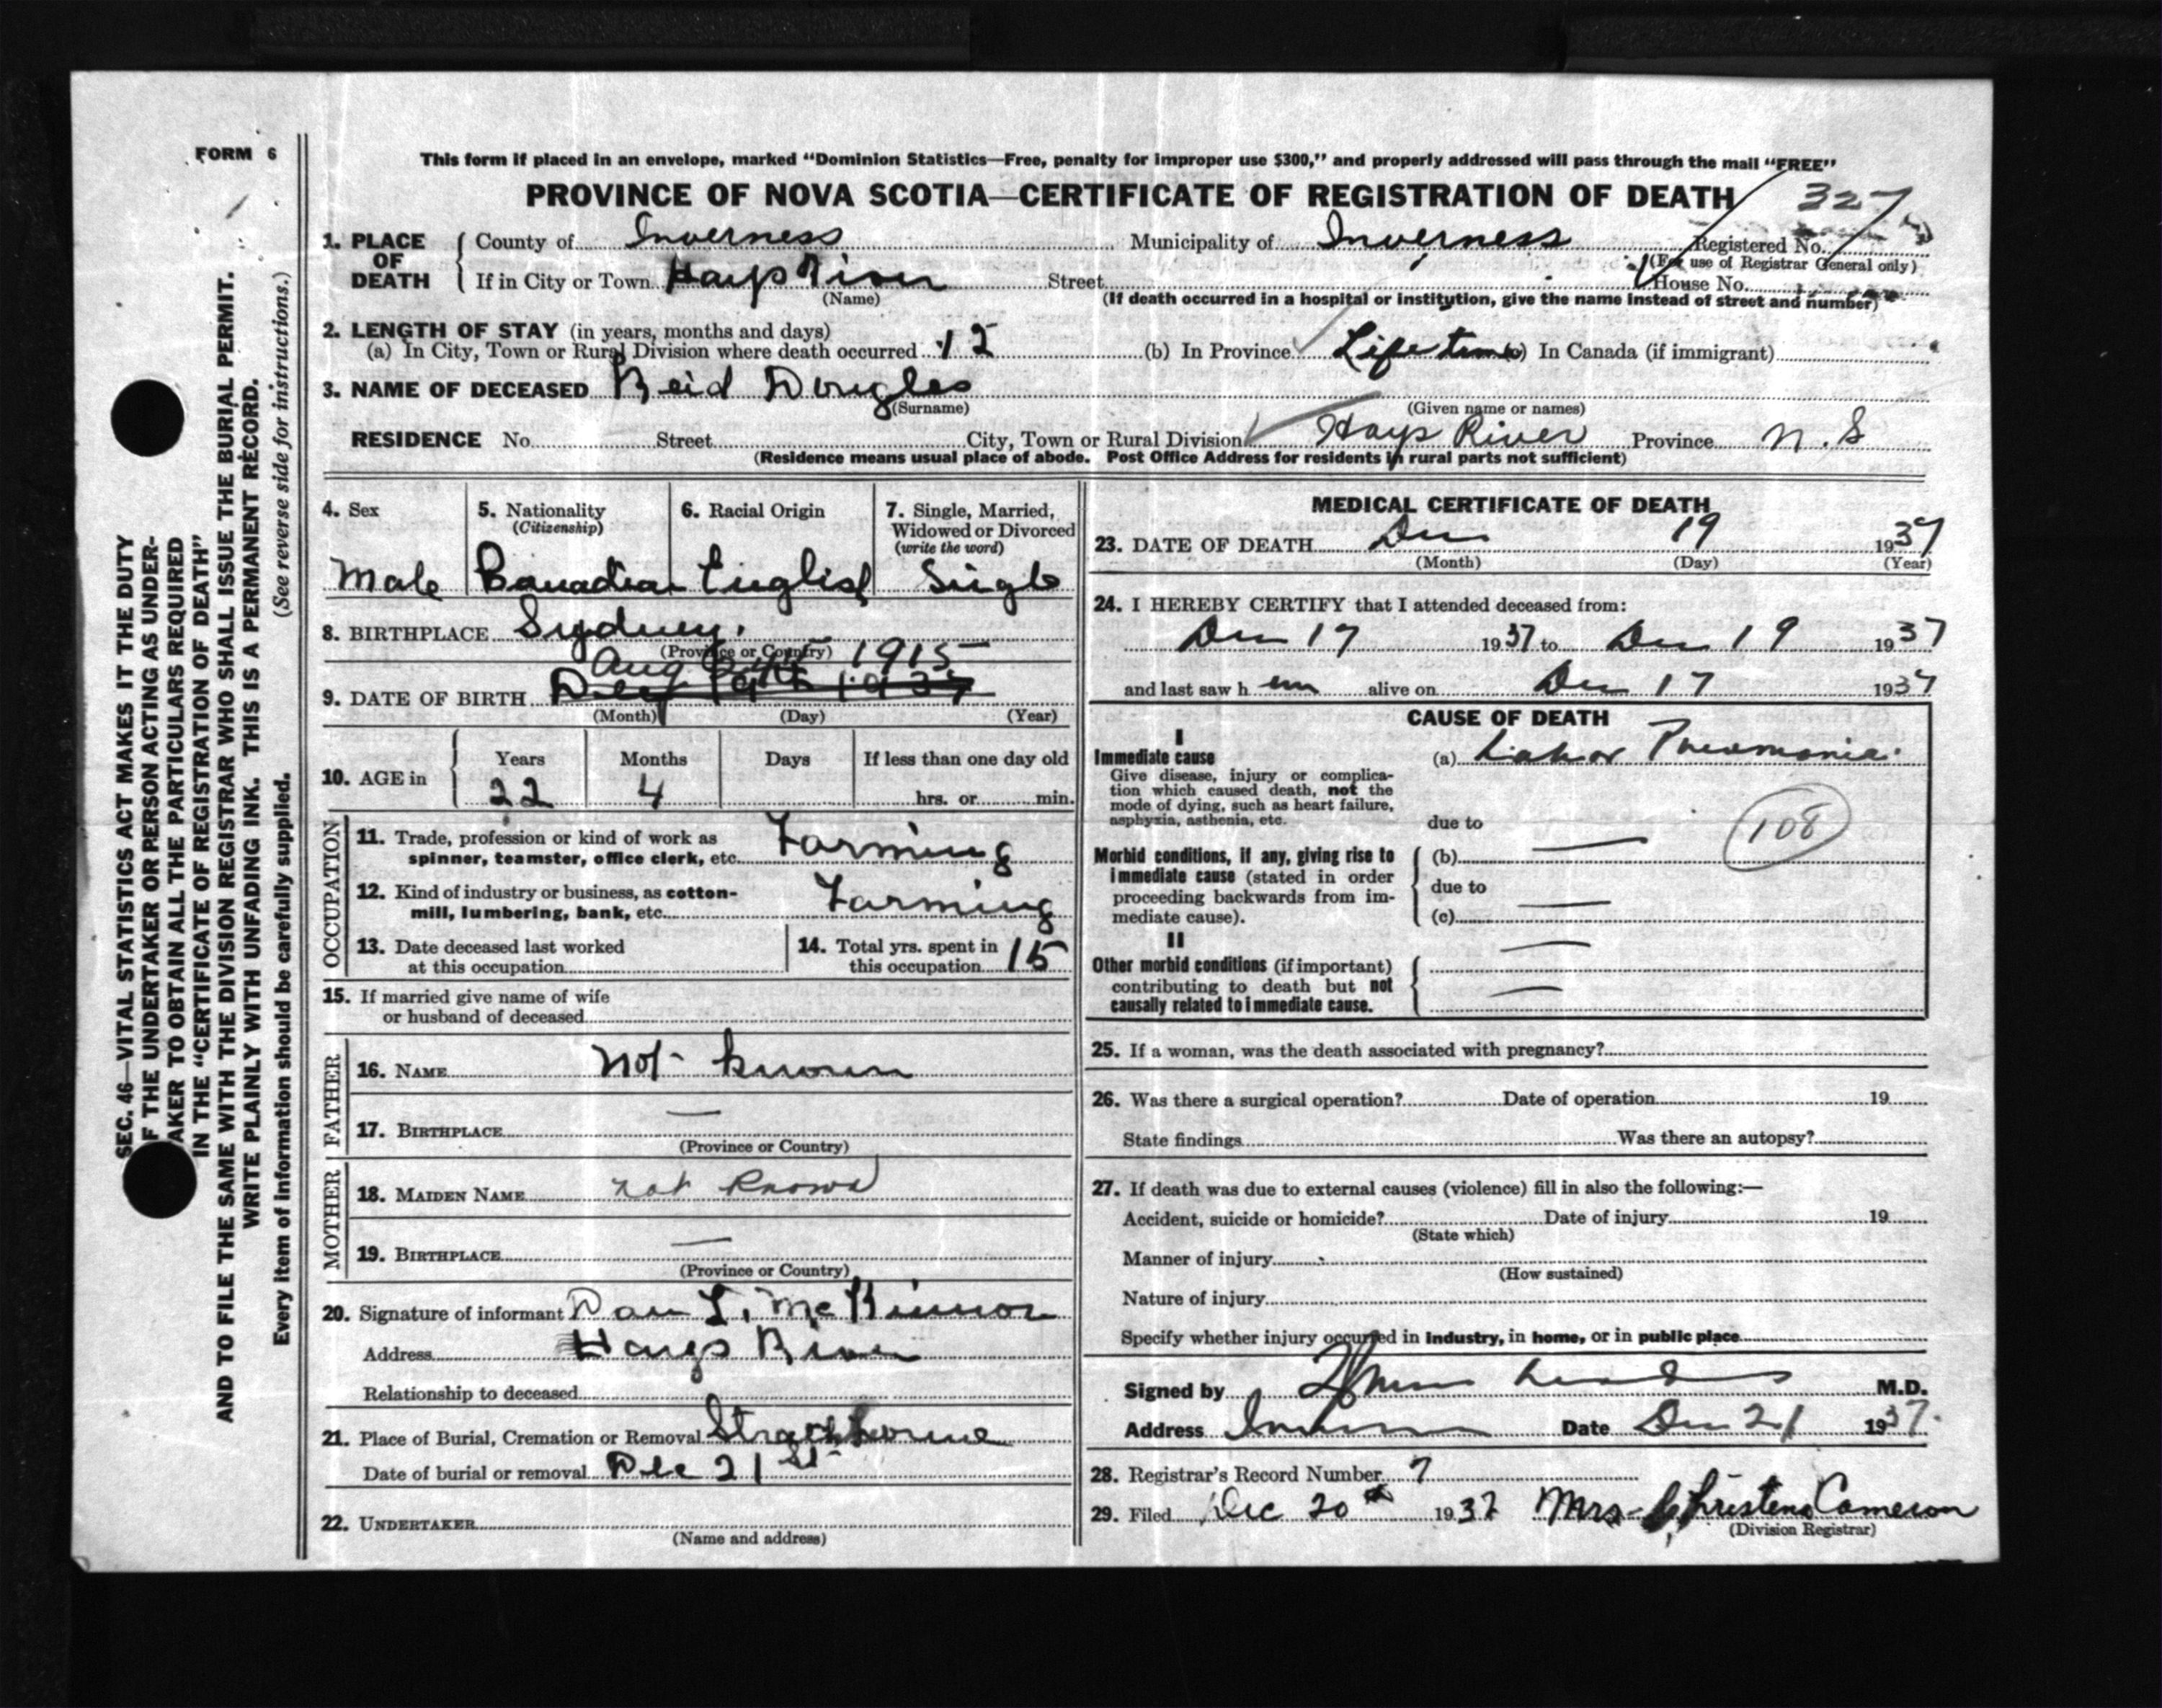 FORM 6
This form if placed in an envelope, marked "Dominion Statistics—Free, penalty for improper use $300," and properly addressed will pass through the mail "FREE"
PROVINCE OF NOVA SCOTIA—CERTIFICATE OF REGISTRATION OF DEATH
327
1. PLACE OF DEATH
County of Inverness Municipality of Inverness Registered No.
(For use of Registrar General only)
If in City or Town Hays River Street House No.
(Name) (If death occurred in a hospital or institution, give the name instead of street and number)
2. LENGTH OF STAY (in years, months and days)
(a) In City, Town or Rural Division where death occurred 12 (b) In Province Life time (c) In Canada (if immigrant)
3. NAME OF DECEASED Reid Dougles
(Surname) (Given name or names)
RESIDENCE No. Street City, Town or Rural Division Hays River Province N.S
(Residence means usual place of abode. Post Office Address for residents in rural parts not sufficient)
4. Sex
Male
5. Nationality
(Citizenship)
Canadian
6. Racial Origin
English
7. Single, Married,
Widowed or Divorced
(write the word)
Single
8. BIRTHPLACE Sydney.
(Province or Country)
Aug 1915
9. DATE OF BIRTH Dec 19th 1937
(Month) (Day) (Year)
10. AGE in
Years Months Days If less than one day old
22 4 hrs. or min.
OCCUPATION
11. Trade, profession or kind of work as
spinner, teamster, office clerk, etc. Farming
12. Kind of industry or business, as cotton-
mill, lumbering, bank, etc. Farming
13. Date deceased last worked
at this occupation
14. Total yrs. spent in
this occupation 15
15. If married give name of wife
or husband of deceased
FATHER
16. NAME Not known
17. BIRTHPLACE —
(Province or Country)
MOTHER
18. MAIDEN NAME not known
19. BIRTHPLACE —
(Province or Country)
20. Signature of informant Dan L. McKinnon
Address Hays River
Relationship to deceased
21. Place of Burial, Cremation or Removal Strathlorne
Date of burial or removal Dec 21st
22. UNDERTAKER
(Name and address)
MEDICAL CERTIFICATE OF DEATH
23. DATE OF DEATH Dec 19 1937
(Month) (Day) (Year)
24. I HEREBY CERTIFY that I attended deceased from:
Dec 17 1937 to Dec 19 1937
and last saw h im alive on Dec 17 1937
CAUSE OF DEATH
I
Immediate cause
Give disease, injury or complica-
tion which caused death, not the
mode of dying, such as heart failure,
asphyxia, asthenia, etc.
(a) Lobar Pneumonia.
due to
108
Morbid conditions, if any, giving rise to
immediate cause (stated in order
proceeding backwards from im-
mediate cause).
(b) —
due to
(c) —
II
Other morbid conditions (if important)
contributing to death but not
causally related to immediate cause.
—
—
25. If a woman, was the death associated with pregnancy?
26. Was there a surgical operation? Date of operation 19
State findings Was there an autopsy?
27. If death was due to external causes (violence) fill in also the following:—
Accident, suicide or homicide? Date of injury 19
(State which)
Manner of injury
(How sustained)
Nature of injury
Specify whether injury occurred in industry, in home, or in public place
Signed by M.D.
Address Inverness Date Dec 21 1937.
28. Registrar's Record Number 7
29. Filed Dec 20th 1937 Mrs Christena Cameron
(Division Registrar)
SEC. 46—VITAL STATISTICS ACT MAKES IT THE DUTY
F THE UNDERTAKER OR PERSON ACTING AS UNDER-
AKER TO OBTAIN ALL THE PARTICULARS REQUIRED
IN THE "CERTIFICATE OF REGISTRATION OF DEATH"
AND TO FILE THE SAME WITH THE DIVISION REGISTRAR WHO SHALL ISSUE THE BURIAL PERMIT.
WRITE PLAINLY WITH UNFADING INK. THIS IS A PERMANENT RECORD.
(See reverse side for instructions.)
Every item of information should be carefully supplied.